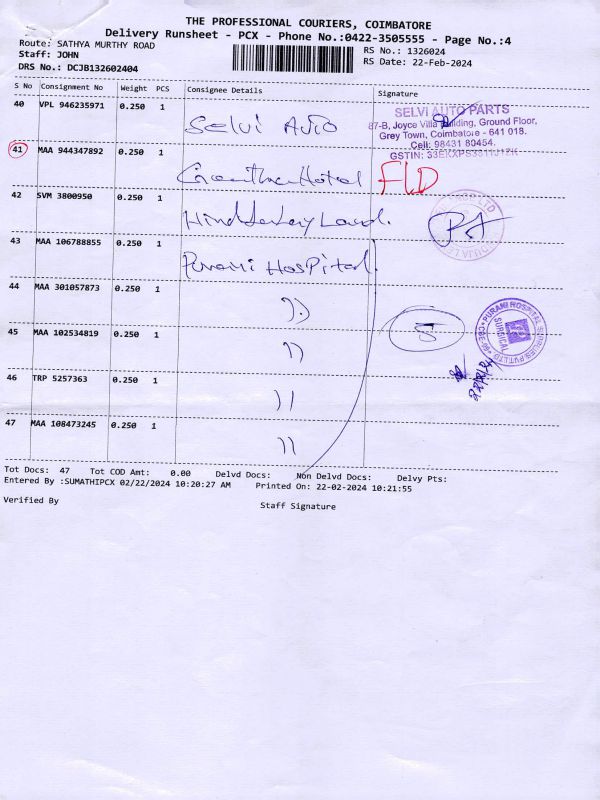 THE PROFESSIONAL COURIERS, COIMBATORE
Delivery Runsheet - PCX - Phone No.:0422-3505555 - Page No.:4
Route: SATHYA MURTHY ROAD
RS No.: 1326024
Staff: JOHN
RS Date: 22-Feb-2024
DRS No.: DCJB132602404
S No Consignment No Weight PCS Consignee Details Signature
40 VPL 946235971 0.250 1 Selvi Auto
SELVI AUTO PARTS
87-B, Joyce Villa Building, Ground Floor,
Grey Town, Coimbatore - 641 018.
Cell: 98431 80454.
GSTIN:
41 MAA 944347892 0.250 1 Hotel
42 SVM 3800950 0.250 1
43 MAA 106788855 0.250 1 Purani Hospital.
44 MAA 301057873 0.250 1 ”
5
PURANI HOSPITAL SUPPLIES PVT LTD
SURGICAL
45 MAA 102534819 0.250 1 ”
46 TRP 5257363 0.250 1 ”
47 MAA 108473245 0.250 1 ”
Tot Docs: 47 Tot COD Amt: 0.00 Delvd Docs: Non Delvd Docs: Delvy Pts:
Entered By :SUMATHIPCX 02/22/2024 10:20:27 AM Printed On: 22-02-2024 10:21:55
Verified By
Staff Signature